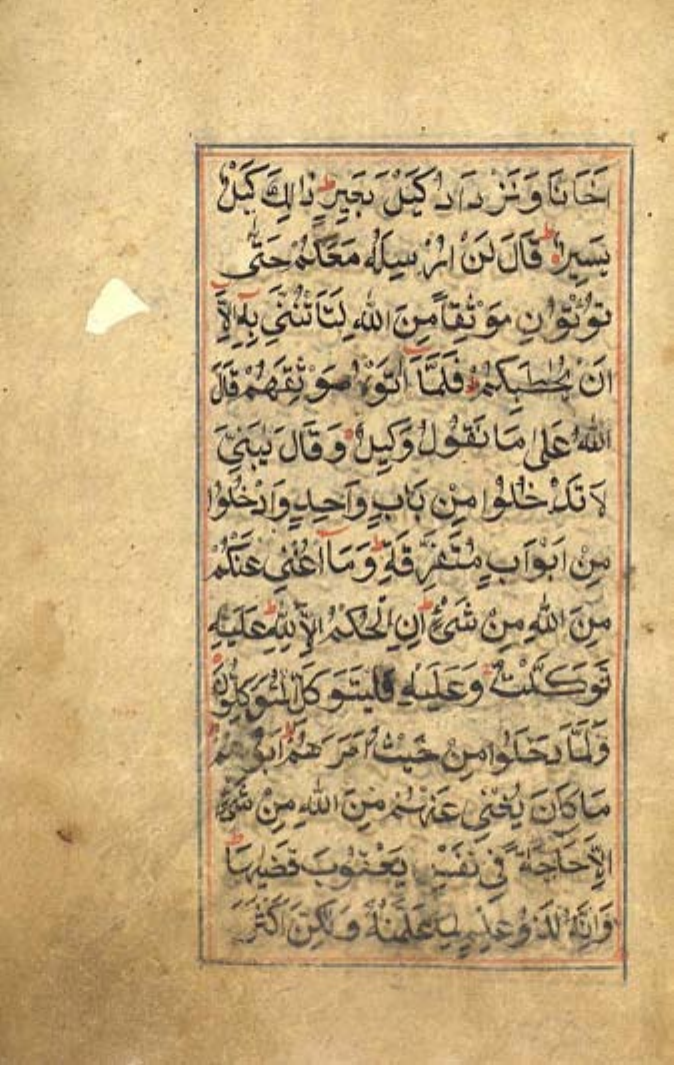 اَخَانَا وَنَزْدَادُ كَيْلَ بَعِيْرٍ ط ذَالِكَ كَيْلٌ
يَسِيْرٌ ط قَالَ لَنْ اُرْسِلَهٗ مَعَكُمْ حَتّٰى
تُؤْتُوْنِ مَوْثِقًا مِّنَ اللهِ لَتَاْتُنَّنِيْ بِهٖ اِلَّا
اَنْ يُّحَاطَ بِكُمْ ط فَلَمَّا اٰتَوْهُ مَوْثِقَهُمْ قَالَ
اللهُ عَلٰى مَا نَقُوْلُ وَكِيْلٌ وَقَالَ يٰبَنِيَّ
لَا تَدْخُلُوْا مِنْ بَابٍ وَّاحِدٍ وَّادْخُلُوْا
مِنْ اَبْوَابٍ مُّتَفَرِّقَةٍ ط وَمَا اُغْنِيْ عَنْكُمْ
مِنَ اللهِ مِنْ شَيْءٍ ط اِنِ الْحُكْمُ اِلَّا لِلّٰهِ ط عَلَيْهِ
تَوَكَّلْتُ وَعَلَيْهِ فَلْيَتَوَكَّلِ الْمُتَوَكِّلُوْنَ
وَلَمَّا دَخَلُوْا مِنْ حَيْثُ اَمَرَهُمْ اَبُوْهُمْ
مَا كَانَ يُغْنِيْ عَنْهُمْ مِنَ اللهِ مِنْ شَيْءٍ
اِلَّا حَاجَةً فِيْ نَفْسِ يَعْقُوْبَ قَضٰىهَا ط
وَاِنَّهٗ لَذُوْ عِلْمٍ لِّمَا عَلَّمْنٰهُ وَلٰكِنَّ اَكْثَرَ